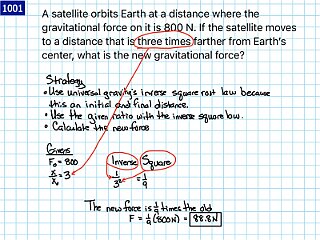 1001
A satellite orbits Earth at a distance where the
gravitational force on it is 800 N. If the satellite moves
to a distance that is three times farther from Earth's
center, what is the new gravitational force?
Strategy
• Use universal gravity's inverse square root law because
this an initial and final distance.
• Use the given ratio with the inverse square law.
• Calculate the new force
Givens
F₀ = 800
x/x₀ = 3
Inverse Square
1/3² = 1/9
The new force is 1/9 times the old
F = 1/9 (800N) = 88.8N